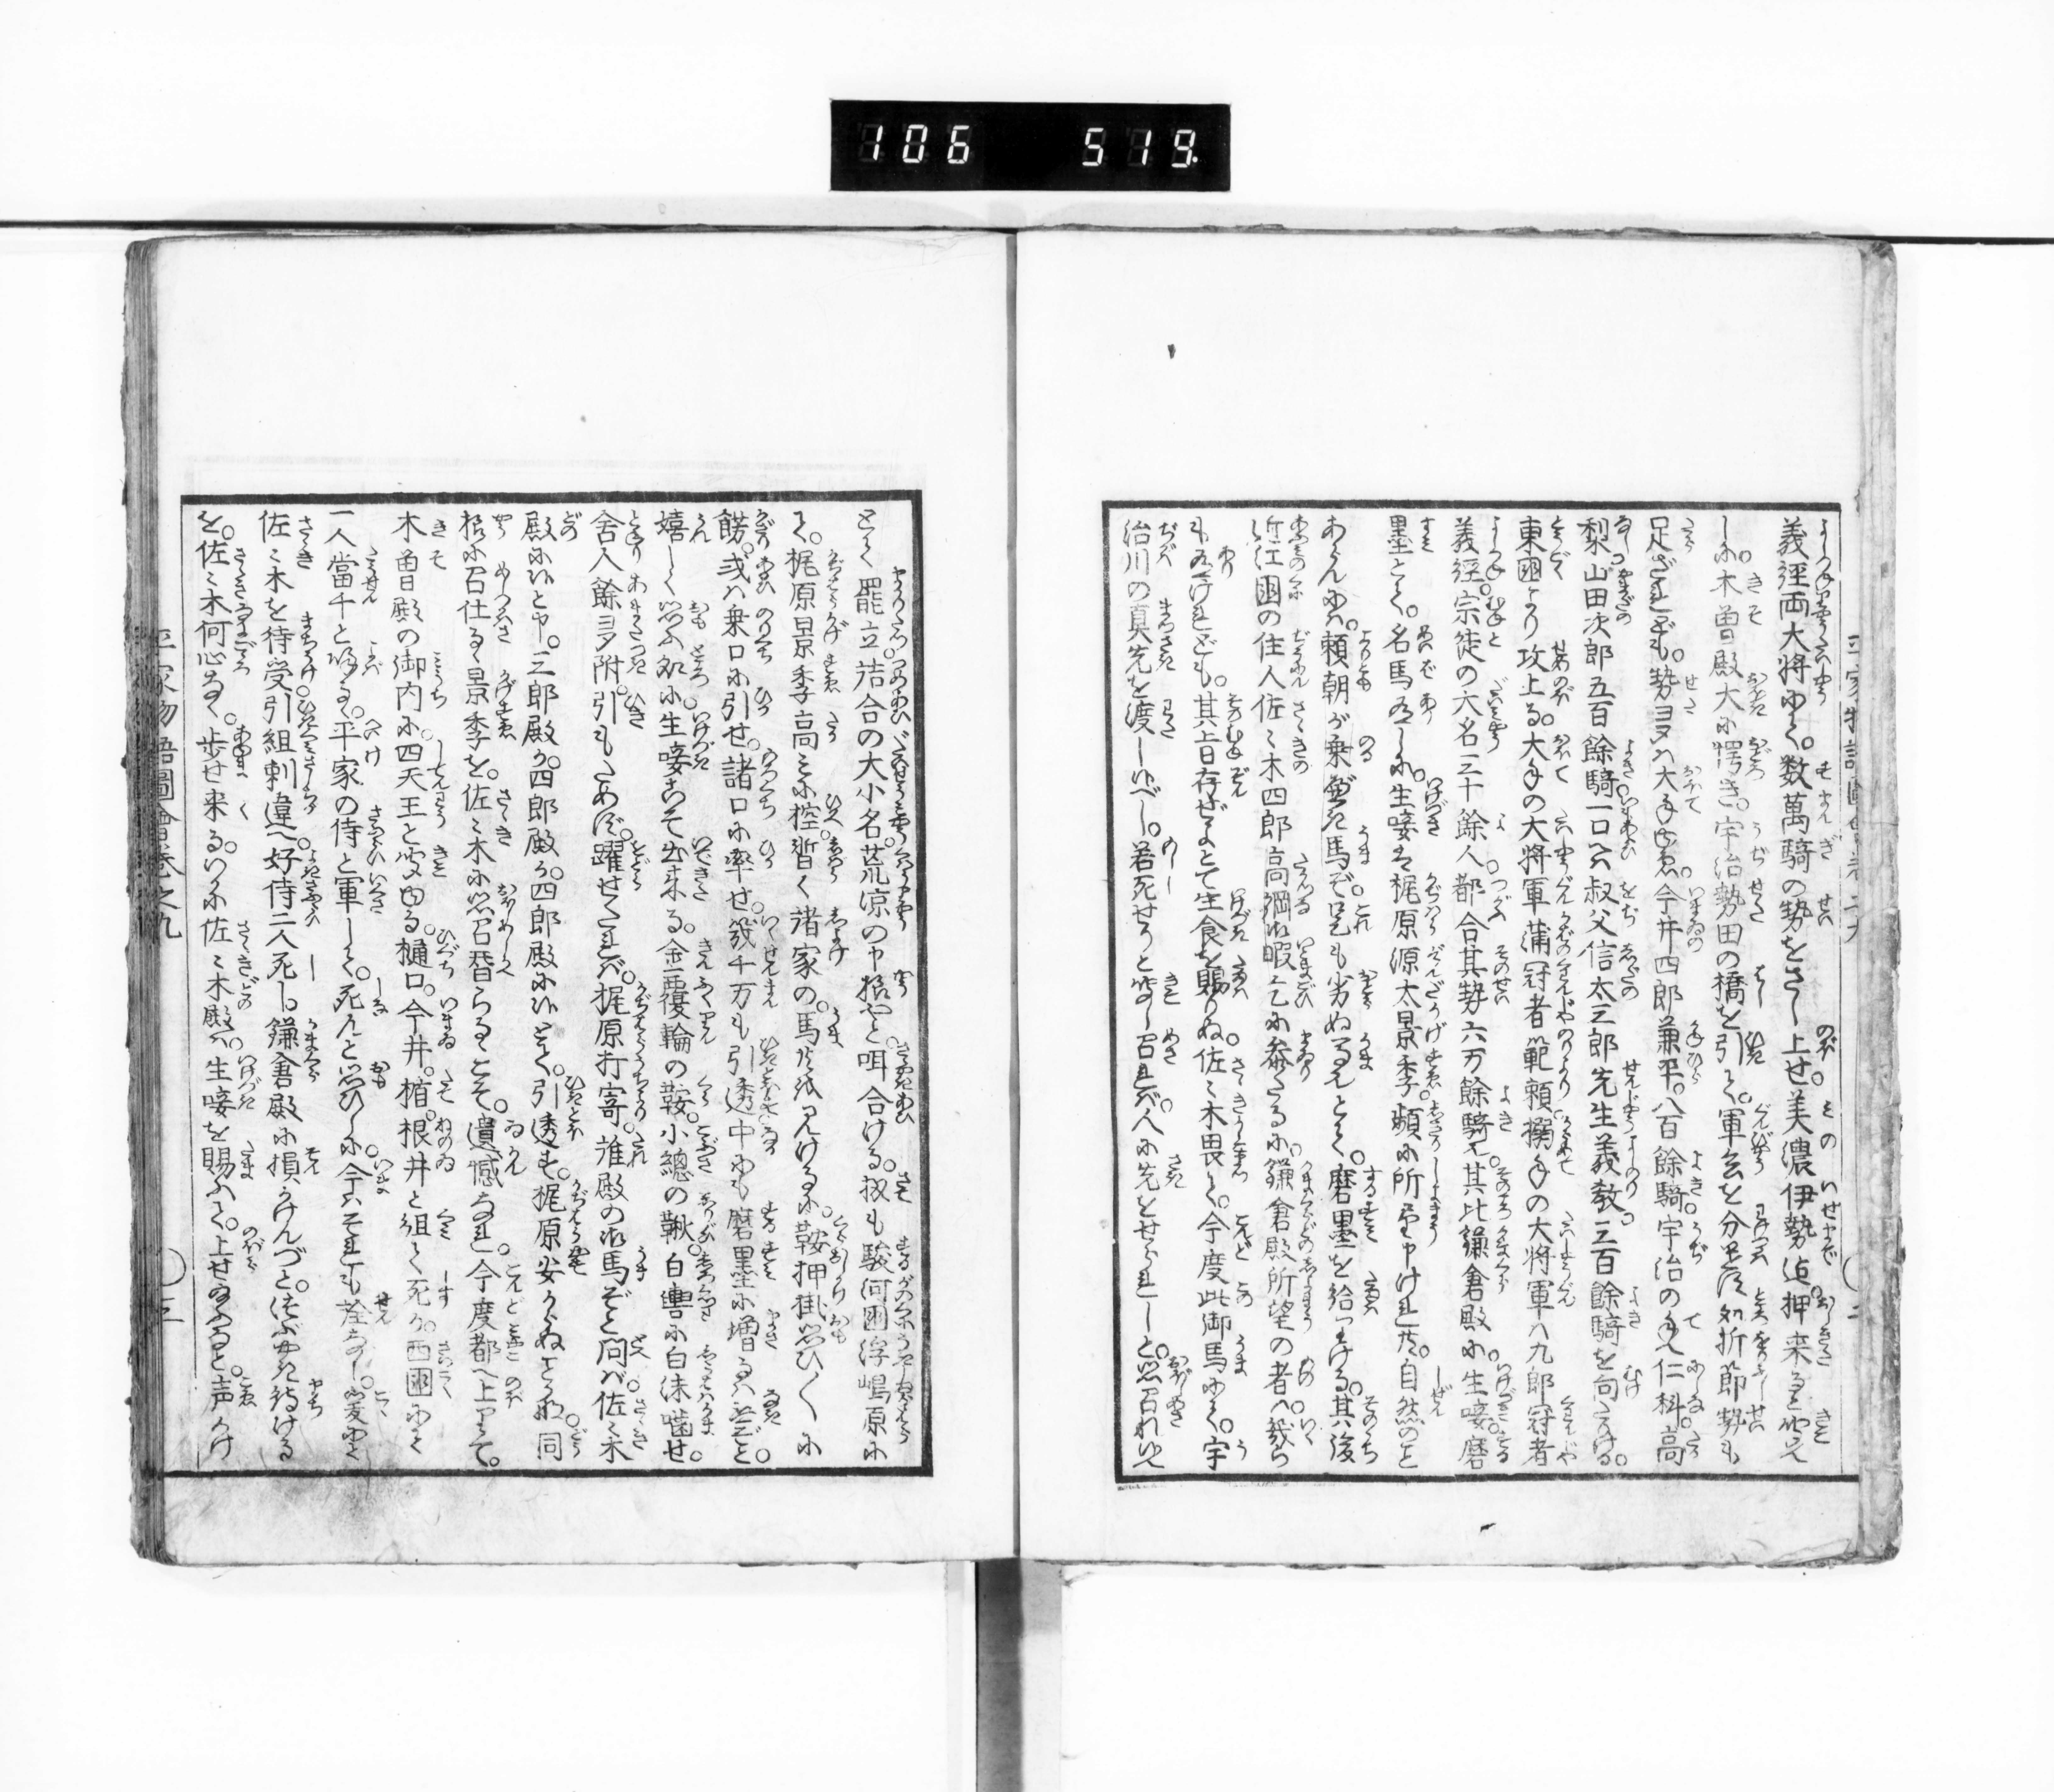 106 519.
義経両大将にて。数萬騎の勢をさし上せ。美濃伊勢迄押来ると聞え
しに。木曽殿大に愕き。宇治勢田の橋を引て。軍兵を分ち遣。折節勢も
足ざれども。勢ヨタハ大手なれ。今井四郎兼平。八百余騎。宇治の手へ仁科。高
梨山田次郎五百餘騎。一口へハ叔父信太三郎先生義教。三百餘騎を向たりける。
東國より攻上る。大手の大将軍蒲冠者範頼搦手の大将軍ハ九郎冠者
義経。宗徒の大名三十餘人都合其勢六万餘騎也。其比鎌倉殿に。生唼。磨
墨とて。名馬有しに。生唼を梶原源太景季。頻に所望申けれ共。自然のこと
あらんに。頼朝が乗べき馬ぞ。是も劣ぬ馬とて。磨墨を給はりける。其後
近江國の住人佐々木四郎高綱御暇乞に参たるに。鎌倉殿所望の者ハ幾ら
も有けれども。其旨存ぜよとて生食を賜りぬ。佐々木畏て。今度此御馬にて。宇
治川の真先を渡し候べし。若死せりと聞し召れバ。人に先をせられしと。思召れ候へ
とて罷立。詰合の大小名荒凉の申様やと咡合ける。扨も駿河國浮嶋原に
て。梶原景季高みに控暫く諸家の。馬共を見けるに。鞍押掛思ひ〳〵に
餝。或ハ乗口に引せ。諸口に率せ。幾千万も引透中にも磨墨に増るハ無ぞと。
嬉しく思ふ処に。生唼こそ出来る。金覆輪の鞍。小總の鞦。白轡に白沫噛せ。
舎人餘ヨタ附。引もためず。躍せたれバ。梶原打寄。誰殿の御馬ぞと問バ佐々木
殿に候と申。三郎殿か。四郎殿か。四郎殿に候とて。引透す。梶原安からぬこと哉。同
様に召仕るゝ景季を。佐々木に思召替らるこそ。遺憾なれ。今度都へ上りて。
木曽殿の御内に。四天王と聞ゆる。樋口。今井。楯。根井と組て死か。西國にて
一人當千と呼るゝ。平家の侍と軍して。死んと思ひしに。今ハそれも詮なし。爰にて
佐々木を待受引組刺違へ。好侍二人死し。鎌倉殿に損とらせんづと。つぶやき待ける
を。佐々木何心なく。歩せ来る。いかに佐々木殿ハ。生唼を賜ふて。上せ給ふると。声かけ
平家物語圖會巻之九 三